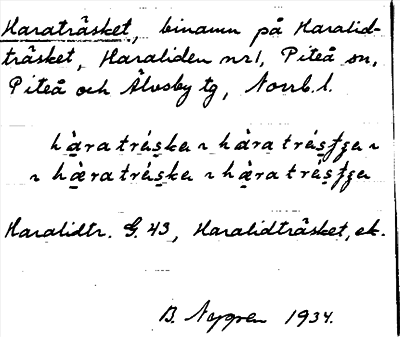 Haraträsket, binamn på Haralid-
träsket, Haraliden nr 1, Piteå sn,
Piteå och Älvsby tg, Norrb. l.
hàra tráska ~ hàra trásʃga ~
~ hæ̀ra tráska ~ hæ̀ra trásʃga
Haralidtr. G. 43, Haralidträsket, ek.
B. Nygren 1934.